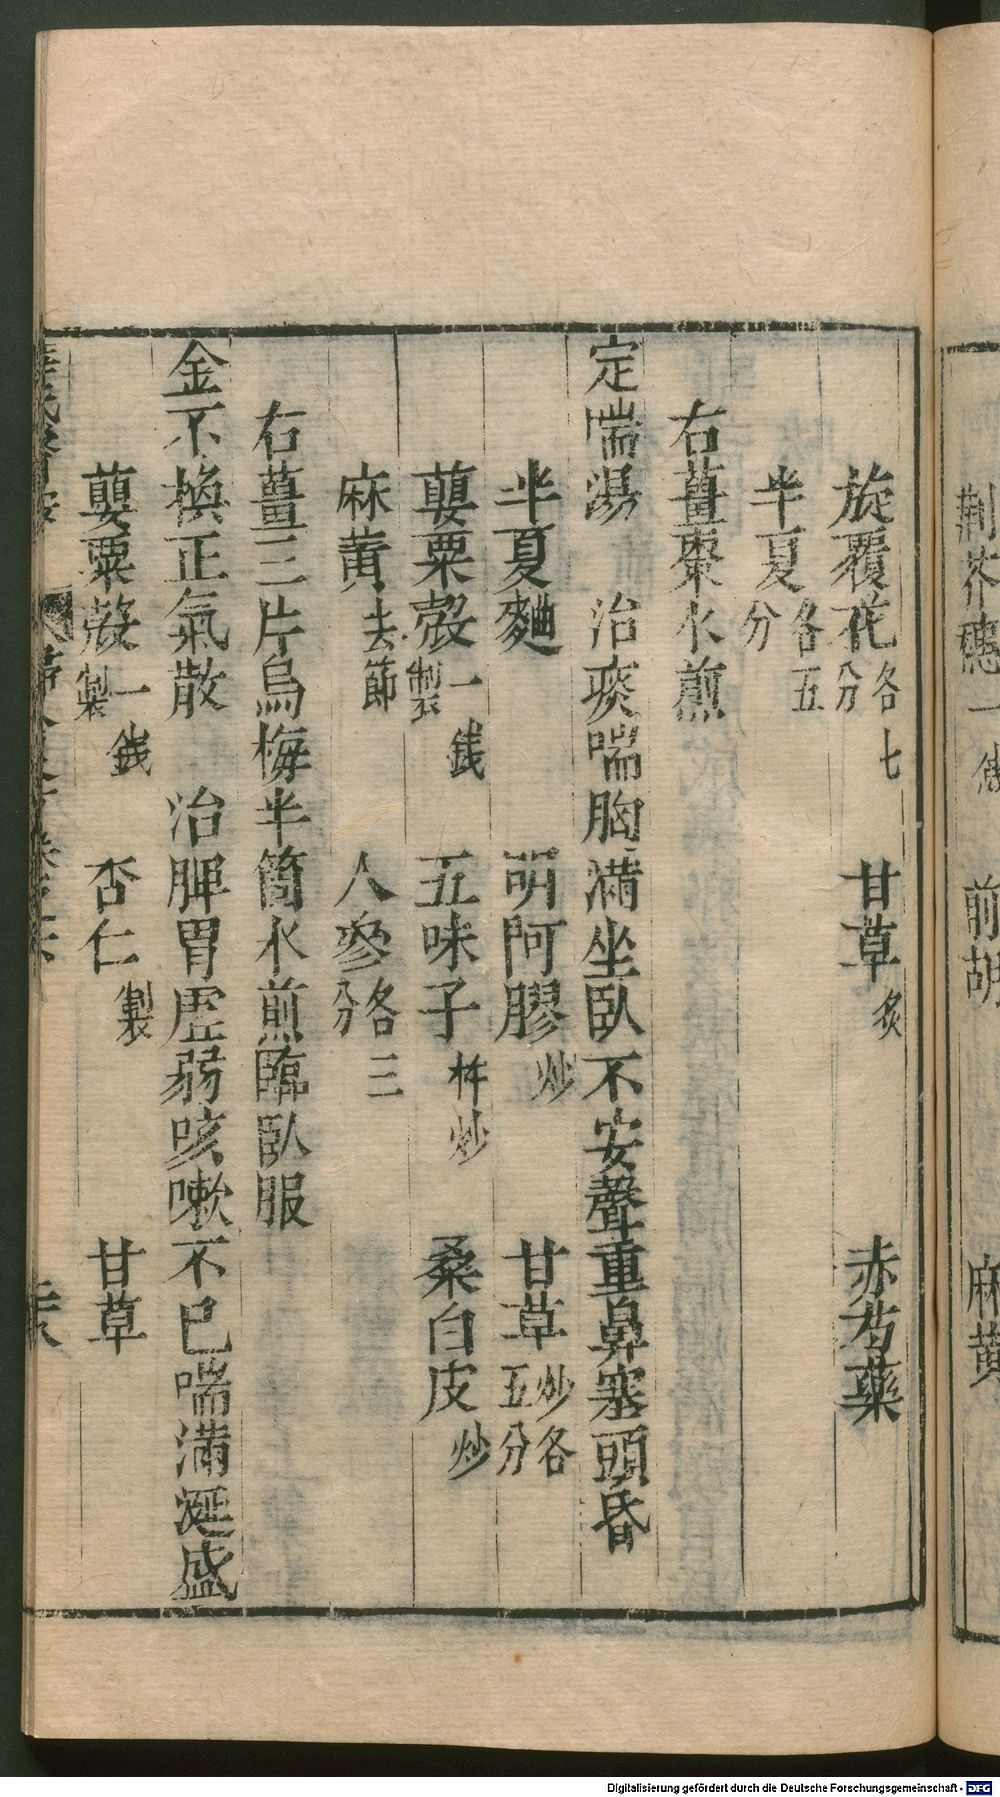 荆芥穗一錢 前胡 麻黄
旋覆花各七分 甘草炙 赤芍藥
半夏各五分
右薑棗水煎
定喘湯 治痰喘胸滿坐臥不安聲重鼻塞頭昏
半夏麯 明阿膠炒 甘草炒各五分
罌粟殻一錢製 五味子杵炒 桑白皮炒
麻黄去節 人參各三分
右薑三片烏梅半箇水煎臨臥服
金不換正氣散 治脾胃虛弱咳嗽不已喘滿涎盛
罌粟殻一錢製 杏仁製 甘草
薛氏醫按
Digitalisierung gefördert durch die Deutsche Forschungsgemeinschaft - DFG